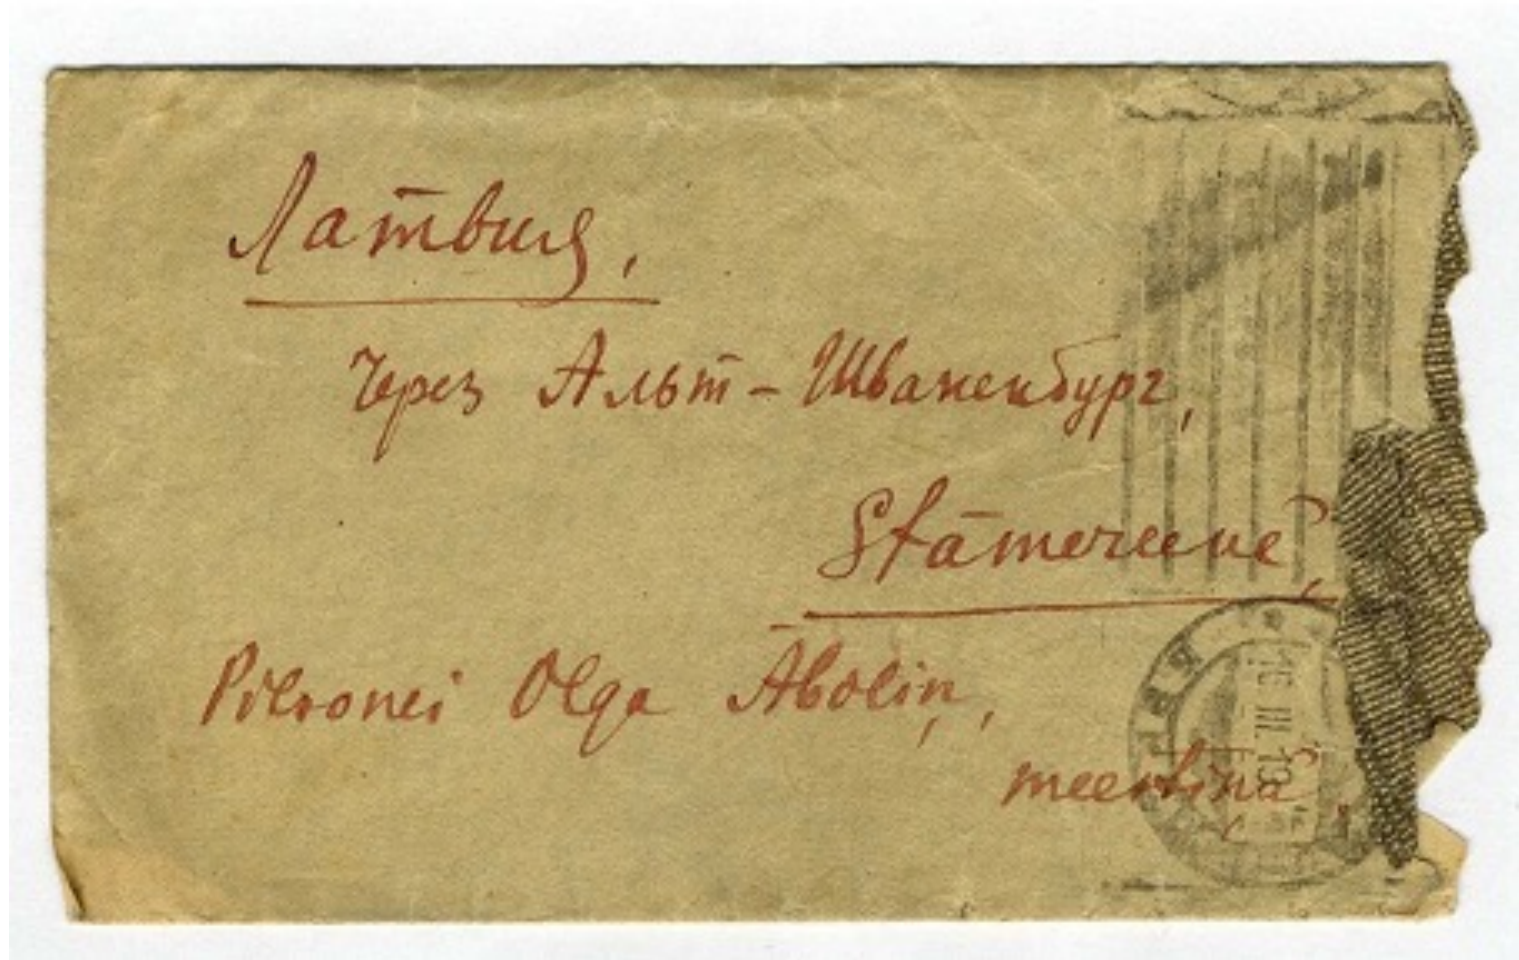 Латвия,
через Альт-Шваненбург,
Stāmereenē,
Pilsonei Olga Āboliņ,
meestiņā.
16 III. 19